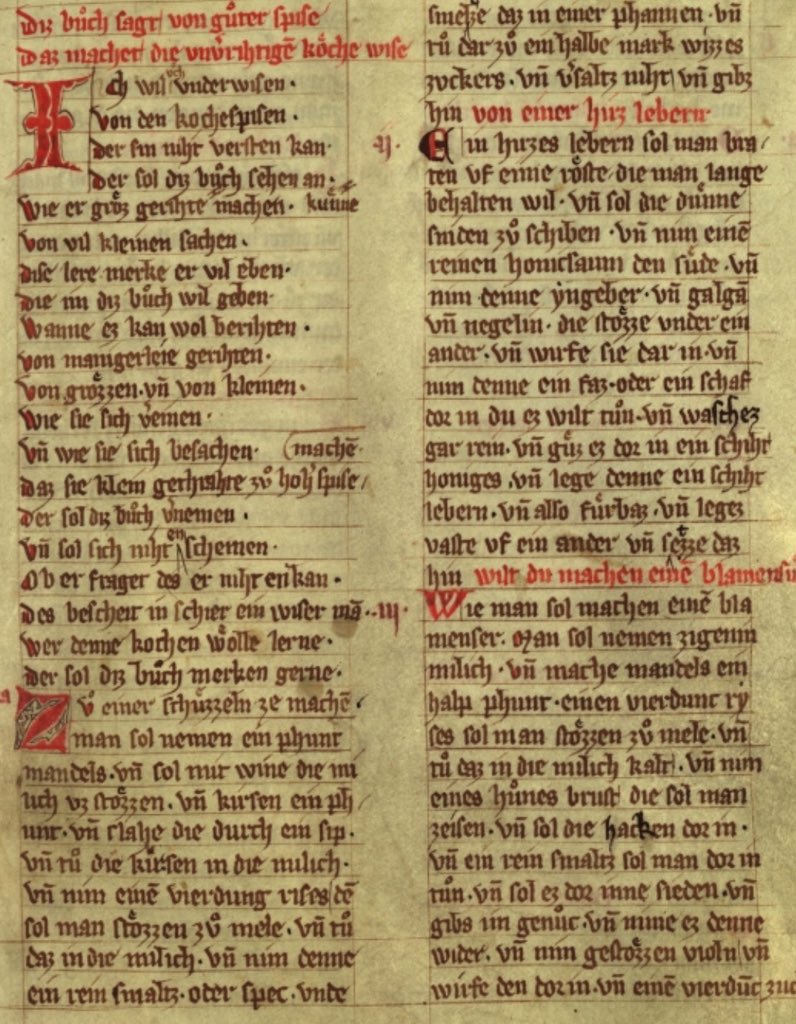 Diz buͦch sagt von guͦter spise
Daz machet die vnv̓rihtigē koͤche wise
Ich wil vch vnderwisen ·
von den kochespisen ·
der sin niht versten kan ·
der sol diz buͦch sehen an ·
wie er groz gerihte machen · kuͤnne
von vil kleinen sachen ·
dise lere merke er vil eben ·
die im diz buͦch wil geben ·
wanne ez kan wol berihten ·
von manigerleie gerihten ·
von groͤzzen · vn̄ von kleinen ·
wie sie sich v̓einen ·
vn̄ wie sie sich besachen · machē ·
daz sie klein gerihte zuͦ hoh̓ spise
der sol diz buͦch v̓nemen ·
vn̄ sol sich niht en schemen ·
Ob er fraget des er niht enkan ·
des bescheit in schier ein wiser mā ·
wer denne kochen woͤlle lerne ·
der sol diz buͦch merken gerne ·
Zuͦ einer schuͤzzeln ze machē ·
man sol nemen ein phunt
mandels · vn̄ sol mit wine die mi
lich vz stozzen · vn̄ kirsen ein ph
unt · vn̄ slahe die durch ein sip ·
vn̄ tuͦ die kirsen in die milich ·
vn̄ nim einē vierdung rises dē
sol man stozzen zuͦ mele · vn̄ tuͦ
daz in die milich · vn̄ nim denne
ein rein smaltz · oder spec · vnde
smeltze daz in einer phannen · vn̄
tuͦ dar zuͦ ein halbe mark wizzes
zvckers · vn̄ v̓saltz niht vn̄ gibz
hin von einer hirz lebern
ij · Ein hirzes lebern sol man bra
ten vf eime roͤste · die man lange
behalten wil · vn̄ sol die duͤnne
sniden zuͦ schiben · vn̄ nim einē
reinen honicsaum den suͤde · vn̄
nim denne yngeber · vn̄ galgā
vn̄ negelin · die stozze vnder ein
ander · vn̄ wirfe sie dar in · vn̄
nim denne ein faz · oder ein schaf
dor in du ez wilt tuͦn · vn̄ waschez
gar rein · vn̄ guͤz ez dor in ein schiht
honiges · vn̄ lege denne ein schiht
lebern · vn̄ also fuͤrbaz · vn̄ legez
vaste vf ein ander vn̄ setze daz
hin wilt du machen einē blamensir
iij · Wie man sol machen einē bla
menser · Man sol nemen zigenin
milich · vn̄ mache mandels ein
halp phunt · einen vierdunc ry
ses sol man stoͤzzen zuͦ mele · vn̄
tuͦ daz in die milich kalt · vn̄ nim
eines huͦnes brust die sol man
zeisen · vn̄ sol die hacken dor in ·
vn̄ ein rein smaltz sol man dor in
tuͦn · vn̄ sol ez dor inne sieden · vn̄
gibs im genuͦc · vn̄ nime ez denne
wider · vn̄ nim gestozzen violn vn̄
wirfe den dor in · vn̄ einē vierdūc zuc